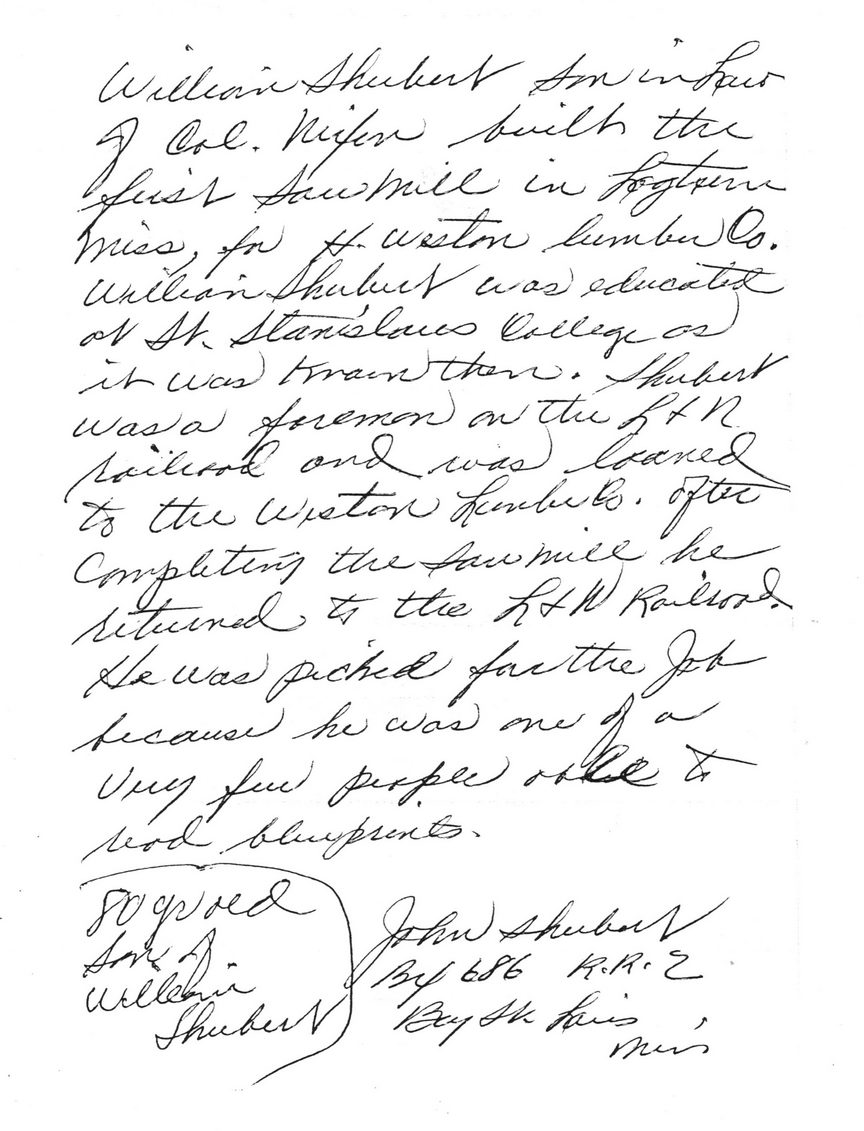 William Shubert son in Law
of Col. Nixon built the
first Sawmill in Logtown
Miss, for H. Weston lumber Co.
William Shubert was educated
at St. Stanislaus College as
it was known then. Shubert
was a foreman on the L & N
railroad and was loaned
to the Weston Lumber Co. After
Completing the sawmill he
returned to the L & N Railroad.
He was picked for the Job
because he was one of a
very few people able to
read blueprints.
80 yr old
son of
William
Shubert
John Shubert
Box 686 R.R. 2
Bay St. Louis
Miss